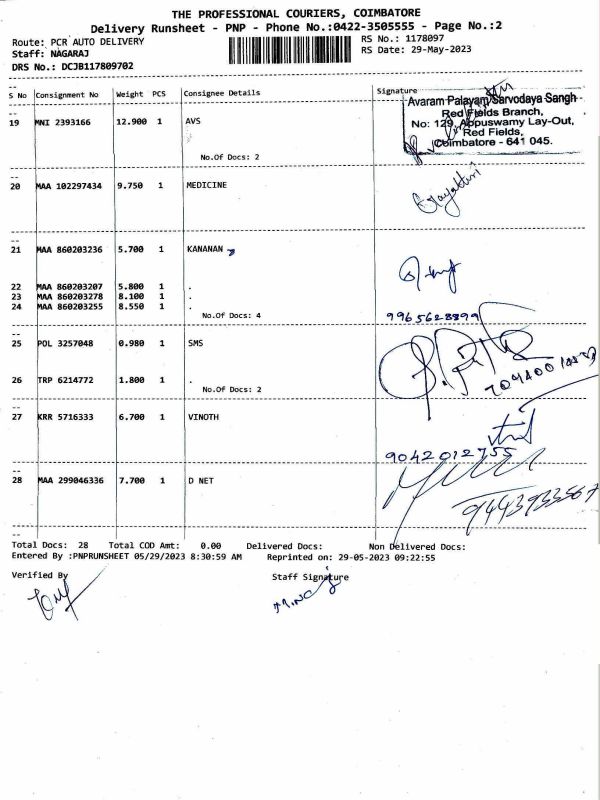 THE PROFESSIONAL COURIERS, COIMBATORE
Delivery Runsheet - PNP - Phone No.:0422-3505555 - Page No.:2
Route: PCR AUTO DELIVERY
RS No.: 1178097
Staff: NAGARAJ
RS Date: 29-May-2023
DRS No.: DCJB117809702
S No Consignment No Weight PCS Consignee Details Signature
19 MNI 2393166 12.900 1 AVS
Avaram Palayam Sarvodaya Sangh
Red Fields Branch,
No: 129, Appuswamy Lay-Out,
Red Fields,
Coimbatore - 641 045.
No.Of Docs: 2
20 MAA 102297434 9.750 1 MEDICINE
Gayathri
21 MAA 860203236 5.700 1 KANANAN
22 MAA 860203207 5.800 1 .
23 MAA 860203278 8.100 1 .
24 MAA 860203255 8.550 1 .
No.Of Docs: 4
9965628899
25 POL 3257048 0.980 1 SMS
26 TRP 6214772 1.800 1 .
No.Of Docs: 2
27 KRR 5716333 6.700 1 VINOTH
9042012755
28 MAA 299046336 7.700 1 D NET
9443933567
Total Docs: 28 Total COD Amt: 0.00 Delivered Docs: Non Delivered Docs:
Entered By :PNPRUNSHEET 05/29/2023 8:30:59 AM Reprinted on: 29-05-2023 09:22:55
Verified By
Staff Signature